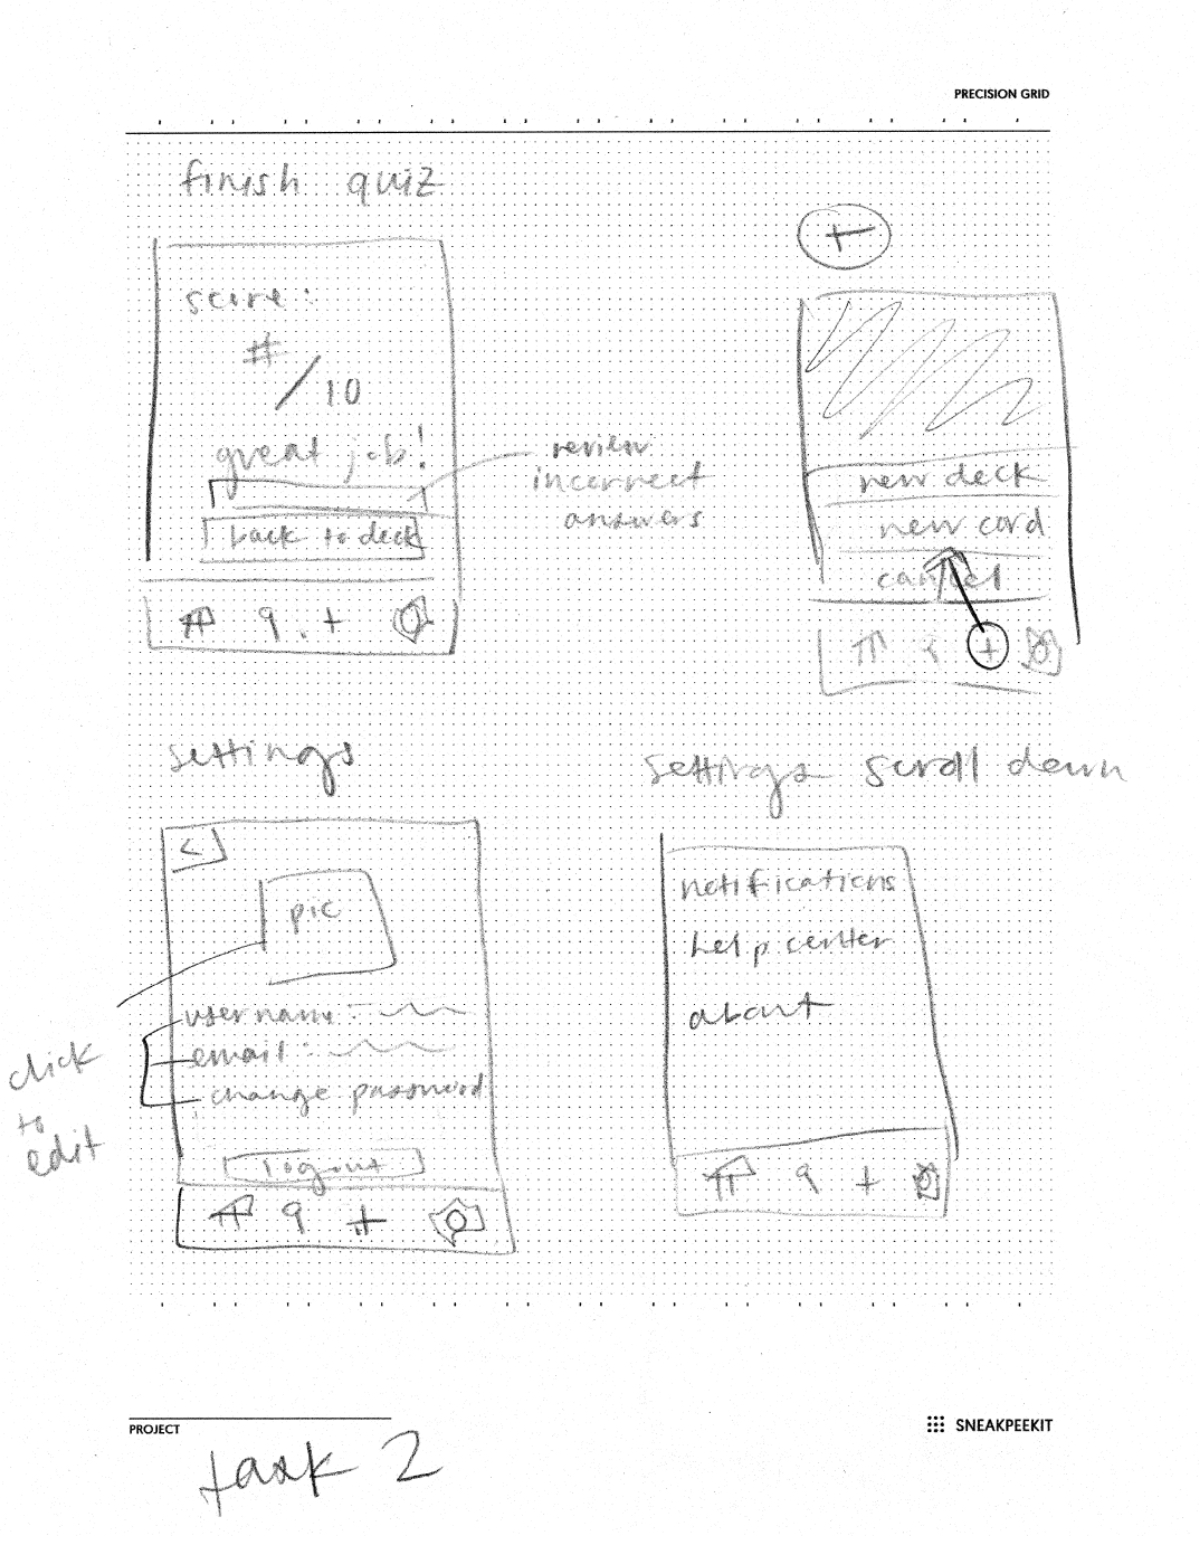 PRECISION GRID
finish quiz
score:
#
/10
great job!
review
incorrect
answers
back to deck
+
+
new deck
new card
cancel
+
settings
<
pic
username:
email:
change password
logout
+
click
to
edit
settings scroll down
notifications
help center
about
+
PROJECT
SNEAKPEEKIT
task 2